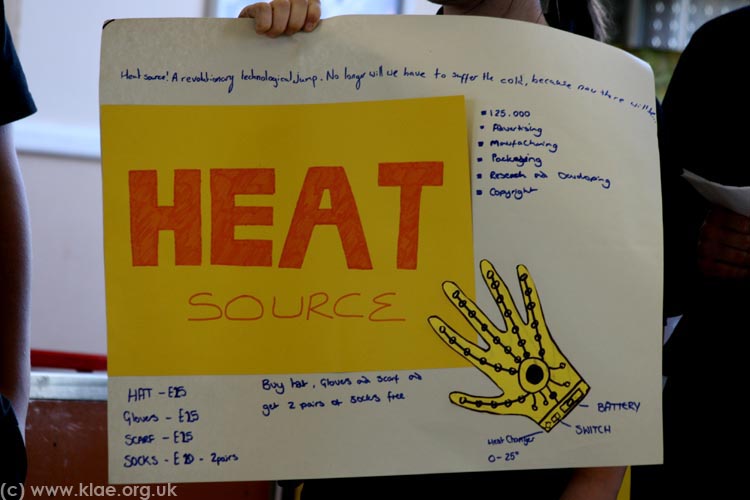 Heat source! A revolutionary technological jump. No longer will we have to suffer the cold, because now there will be
HEAT
SOURCE
125.000
Advertising
Manufacturing
Packaging
Research and Developing
Copyright
HAT - £25
Gloves - £15
SCARF - £15
SOCKS - £20 - 2pairs
Buy hat, Gloves and Scarf and
get 2 pairs of Socks free
BATTERY
SWITCH
Heat Changer
0 - 25°
(c) www.klae.org.uk